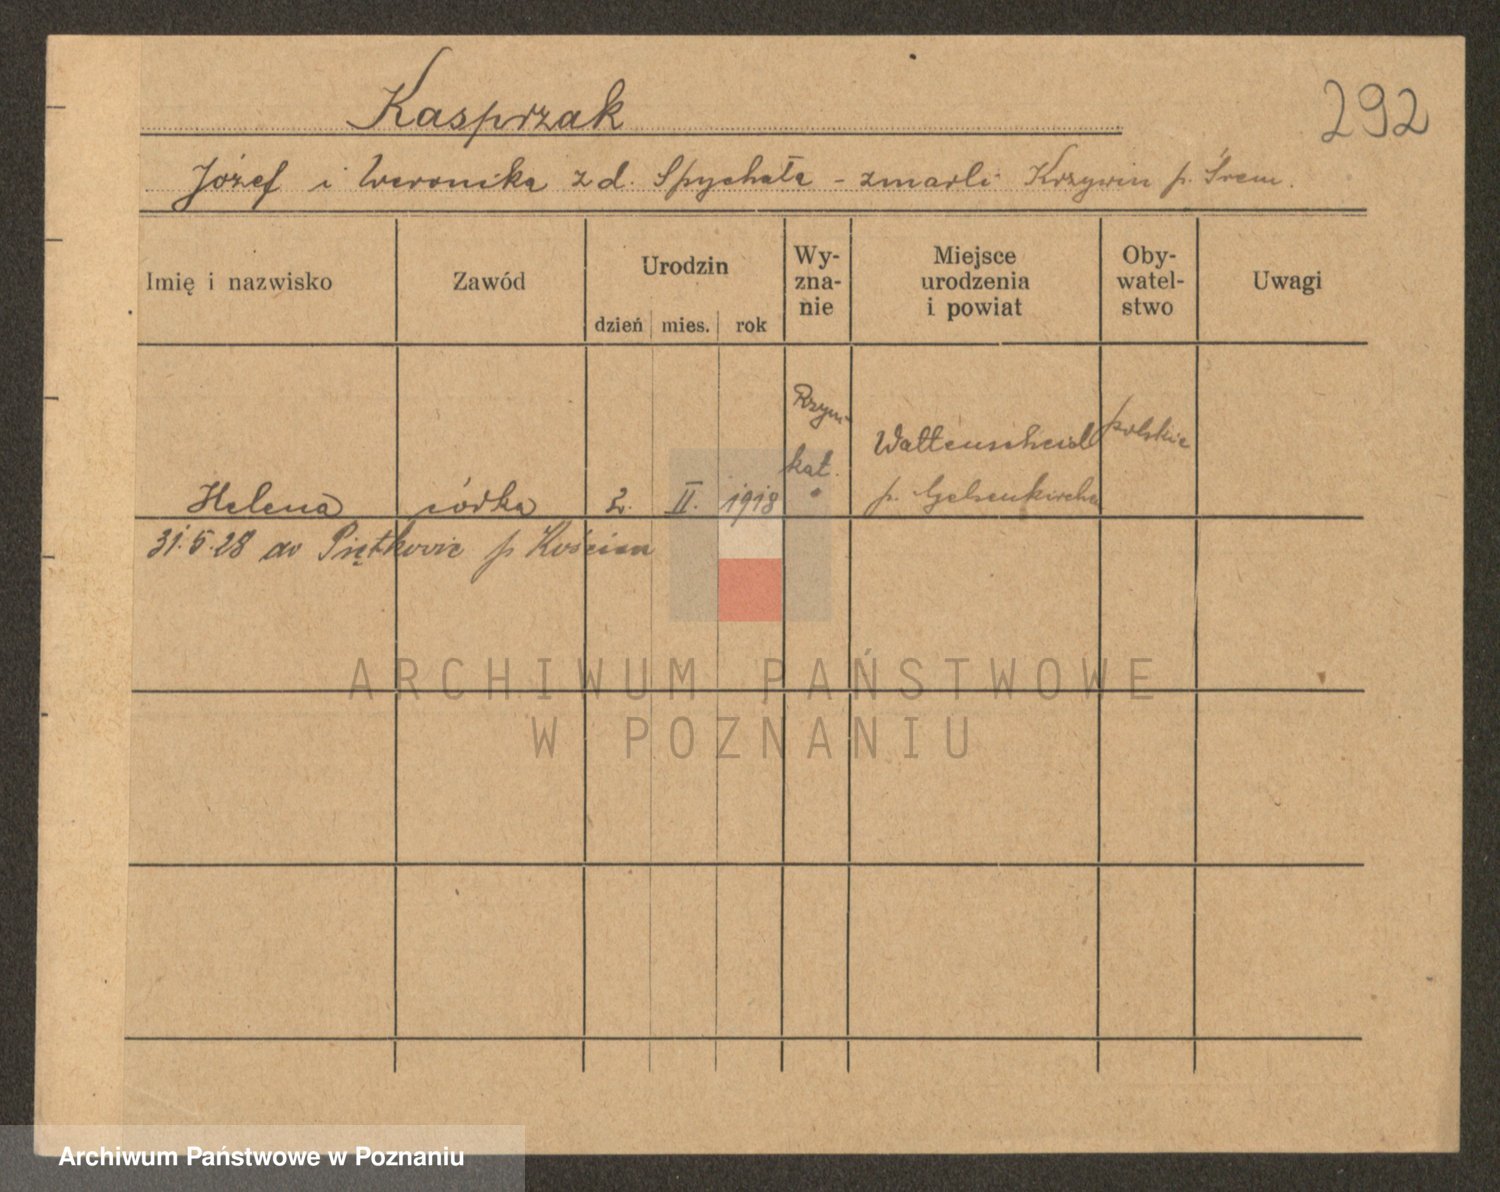 292
Kasprzak
Józef i Weronika z d. Spychała - zmarli Krzywin p. Śrem.
Imię i nazwisko
Zawód
Urodzin
dzień
mies.
rok
Wy-
zna-
nie
Miejsce
urodzenia
i powiat
Oby-
watel-
stwo
Uwagi
Helena
córka
2.
II.
1918
Rzym-
kat.
Wattenscheid
p. Gelsenkirchen
polskie
31.5.28 do p Kościan
ARCHIWUM PAŃSTWOWE
W POZNANIU
Archiwum Państwowe w Poznaniu